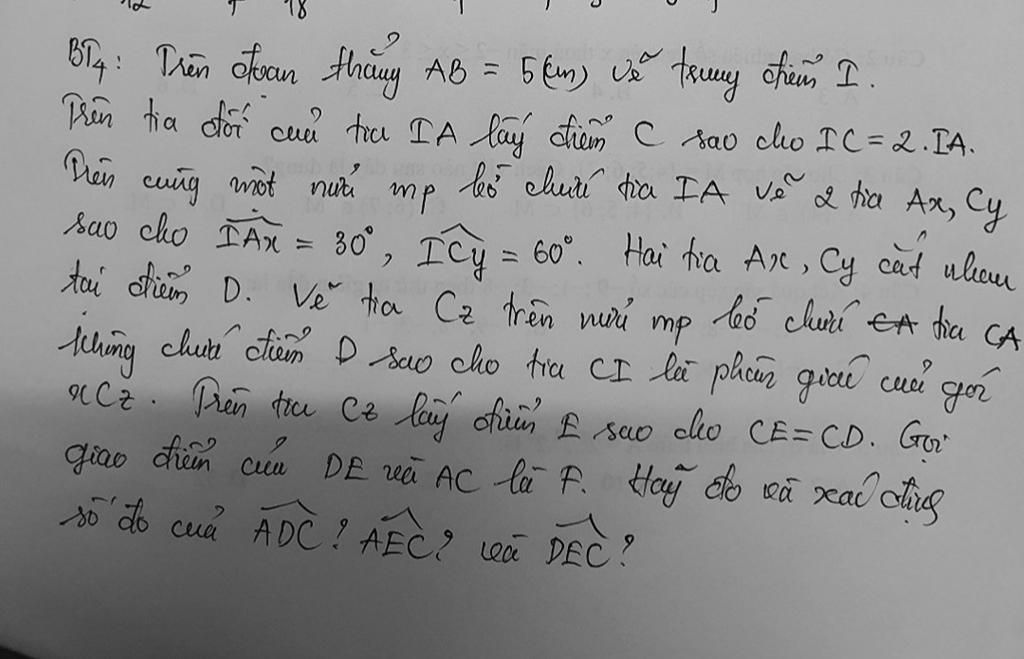 12 18
BT4: Trên đoạn thẳng AB = 5(cm) vẽ trung điểm I.
Trên tia đối của tia IA lấy điểm C sao cho IC = 2.IA.
Trên cùng một nửa mp bờ chứa tia IA vẽ 2 tia Ax, Cy
sao cho IAx = 30°, ICy = 60°. Hai tia Ax, Cy cắt nhau
tại điểm D. Vẽ tia Cz trên nửa mp bờ chứa CA tia CA
không chứa điểm D sao cho tia CI là phân giác của góc
xCz. Trên tia Cz lấy điểm E sao cho CE = CD. Gọi
giao điểm của DE và AC là F. Hãy đo và xác định
số đo của ADC? AEC? và DEC?